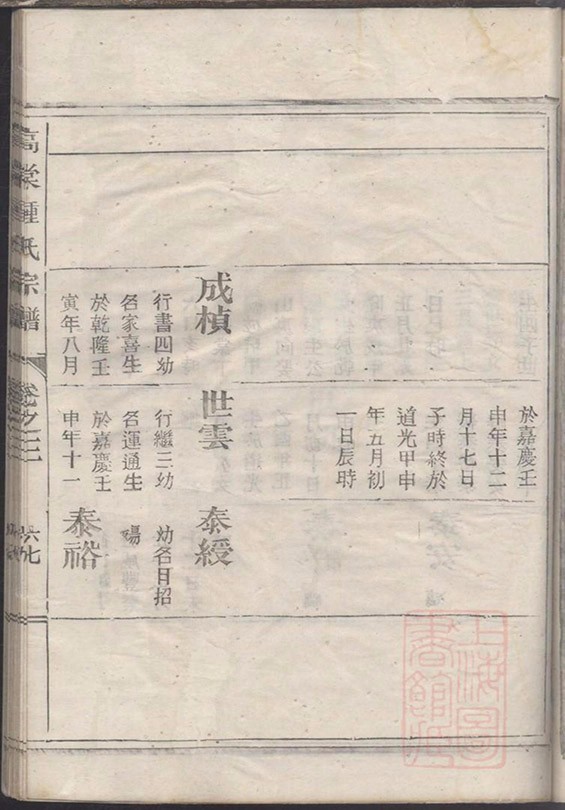 於嘉慶壬
申年十二
月十七日
子時終於
道光甲申
年五月初
一日辰時
成楨
世雲
泰綬
行書四幼
名家喜生
於乾隆壬
寅年八月
行繼三幼
名運通生
於嘉慶壬
申年十一
幼名目招
殤
泰裕
高棠鍾氏宗譜
卷之三
六七
上海圖書館藏